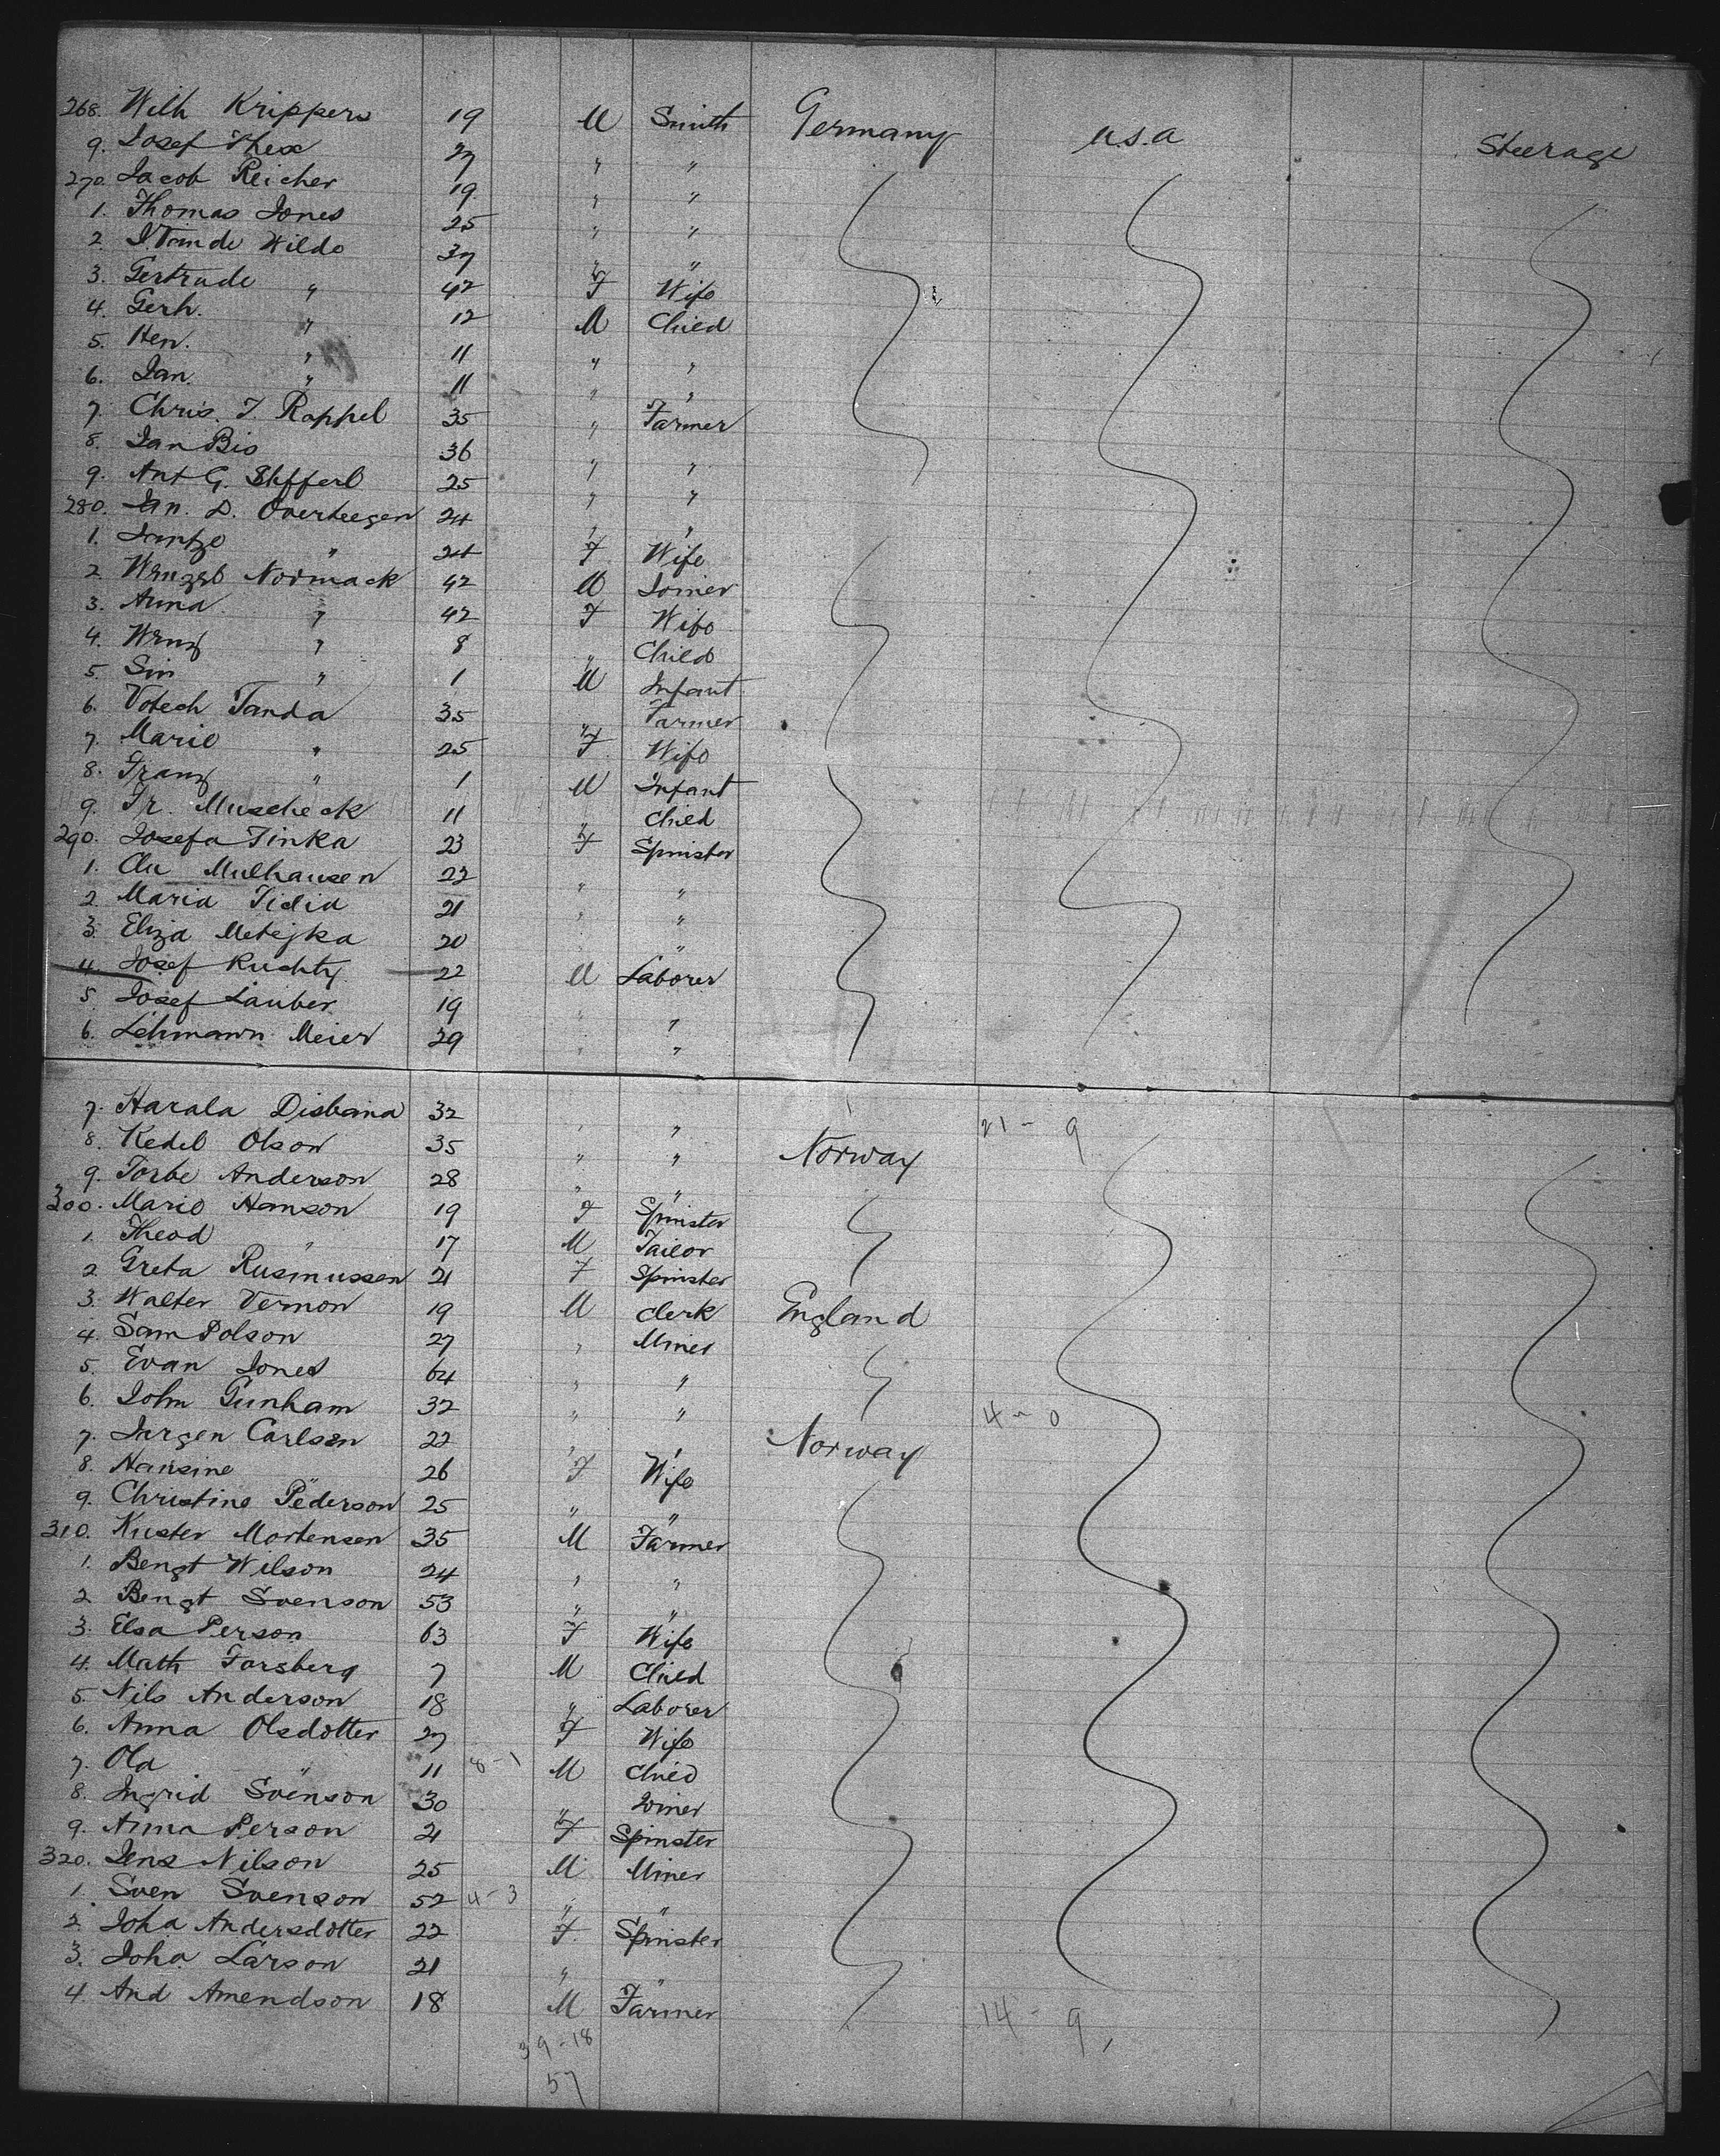 268. Wilh Krippers 19 M Smith Germany U.S.A Steerage
9. Josef Thex 27 " "
270. Jacob Reicher 19 " "
1. Thomas Jones 25 " "
2. J. Vande Wilde 37 " "
3. Gertrude " 42 F Wife
4. Gerh. " 12 M Child
5. Hen. " 11 " "
6. Jan. " 11 " "
7. Chris. J. Rappel 35 " Farmer
8. Jan Bis 36 " "
9. Ant G. 25 " "
280. Jan. D. Overteegen 24 " "
1. Jantze " 24 F Wife
2. Wenzel Normack 42 M Joiner
3. Anna " 42 F Wife
4. Wenz " 8 " Child
5. Sin " 1 M Infant
6. Votech Tanda 35 " Farmer
7. Marie " 25 F Wife
8. Franz " 1 M Infant
9. Fr. Muscheck 11 " Child
290. Josefa Finka 23 F Spinster
1. Mulhausen 22 " "
2. Maria Fidia 21 " "
3. Eliza Metejka 20 " "
4. Josef Ruchty 22 M Laborer
5. Josef Lauber 19 " "
6. Lehmann Meier 39 " "
7. Harala Disbana 32 " " 21 - 9
8. Kedel Olson 35 " " Norway
9. Torbe Anderson 28 " "
300. Marie Hanson 19 F Spinster
1. Theod " 17 M Tailor
2. Greta Rusmussen 21 F Spinster
3. Walter Vernon 19 M Clerk England
4. Sam Polson 27 " Miner
5. Evan Jones 64 " "
6. John Gunham 32 " " 4 - 0
7. Jurgen Carlsen 22 " " Norway
8. Hansine " 26 F Wife
9. Christine Pederson 25 " "
310. Kuster Mortensen 35 M Farmer
1. Bengt Wilson 24 " "
2. Bengt Svenson 53 " "
3. Elsa Person 63 F Wife
4. Math Forsberg 7 M Child
5. Nils Anderson 18 " Laborer
6. Anna Olsdotter 27 F Wife
7. Ola " 11 8-1 M Child
8. Ingrid Svenson 30 " Joiner
9. Anna Person 21 F Spinster
320. Jens Nilson 25 M Miner
1. Sven Svenson 52 4-3 " "
2. Joha Andersdotter 22 F Spinster
3. Joha Larson 21 " "
4. And Amendson 18 M Farmer 14 - 9
39-18
57